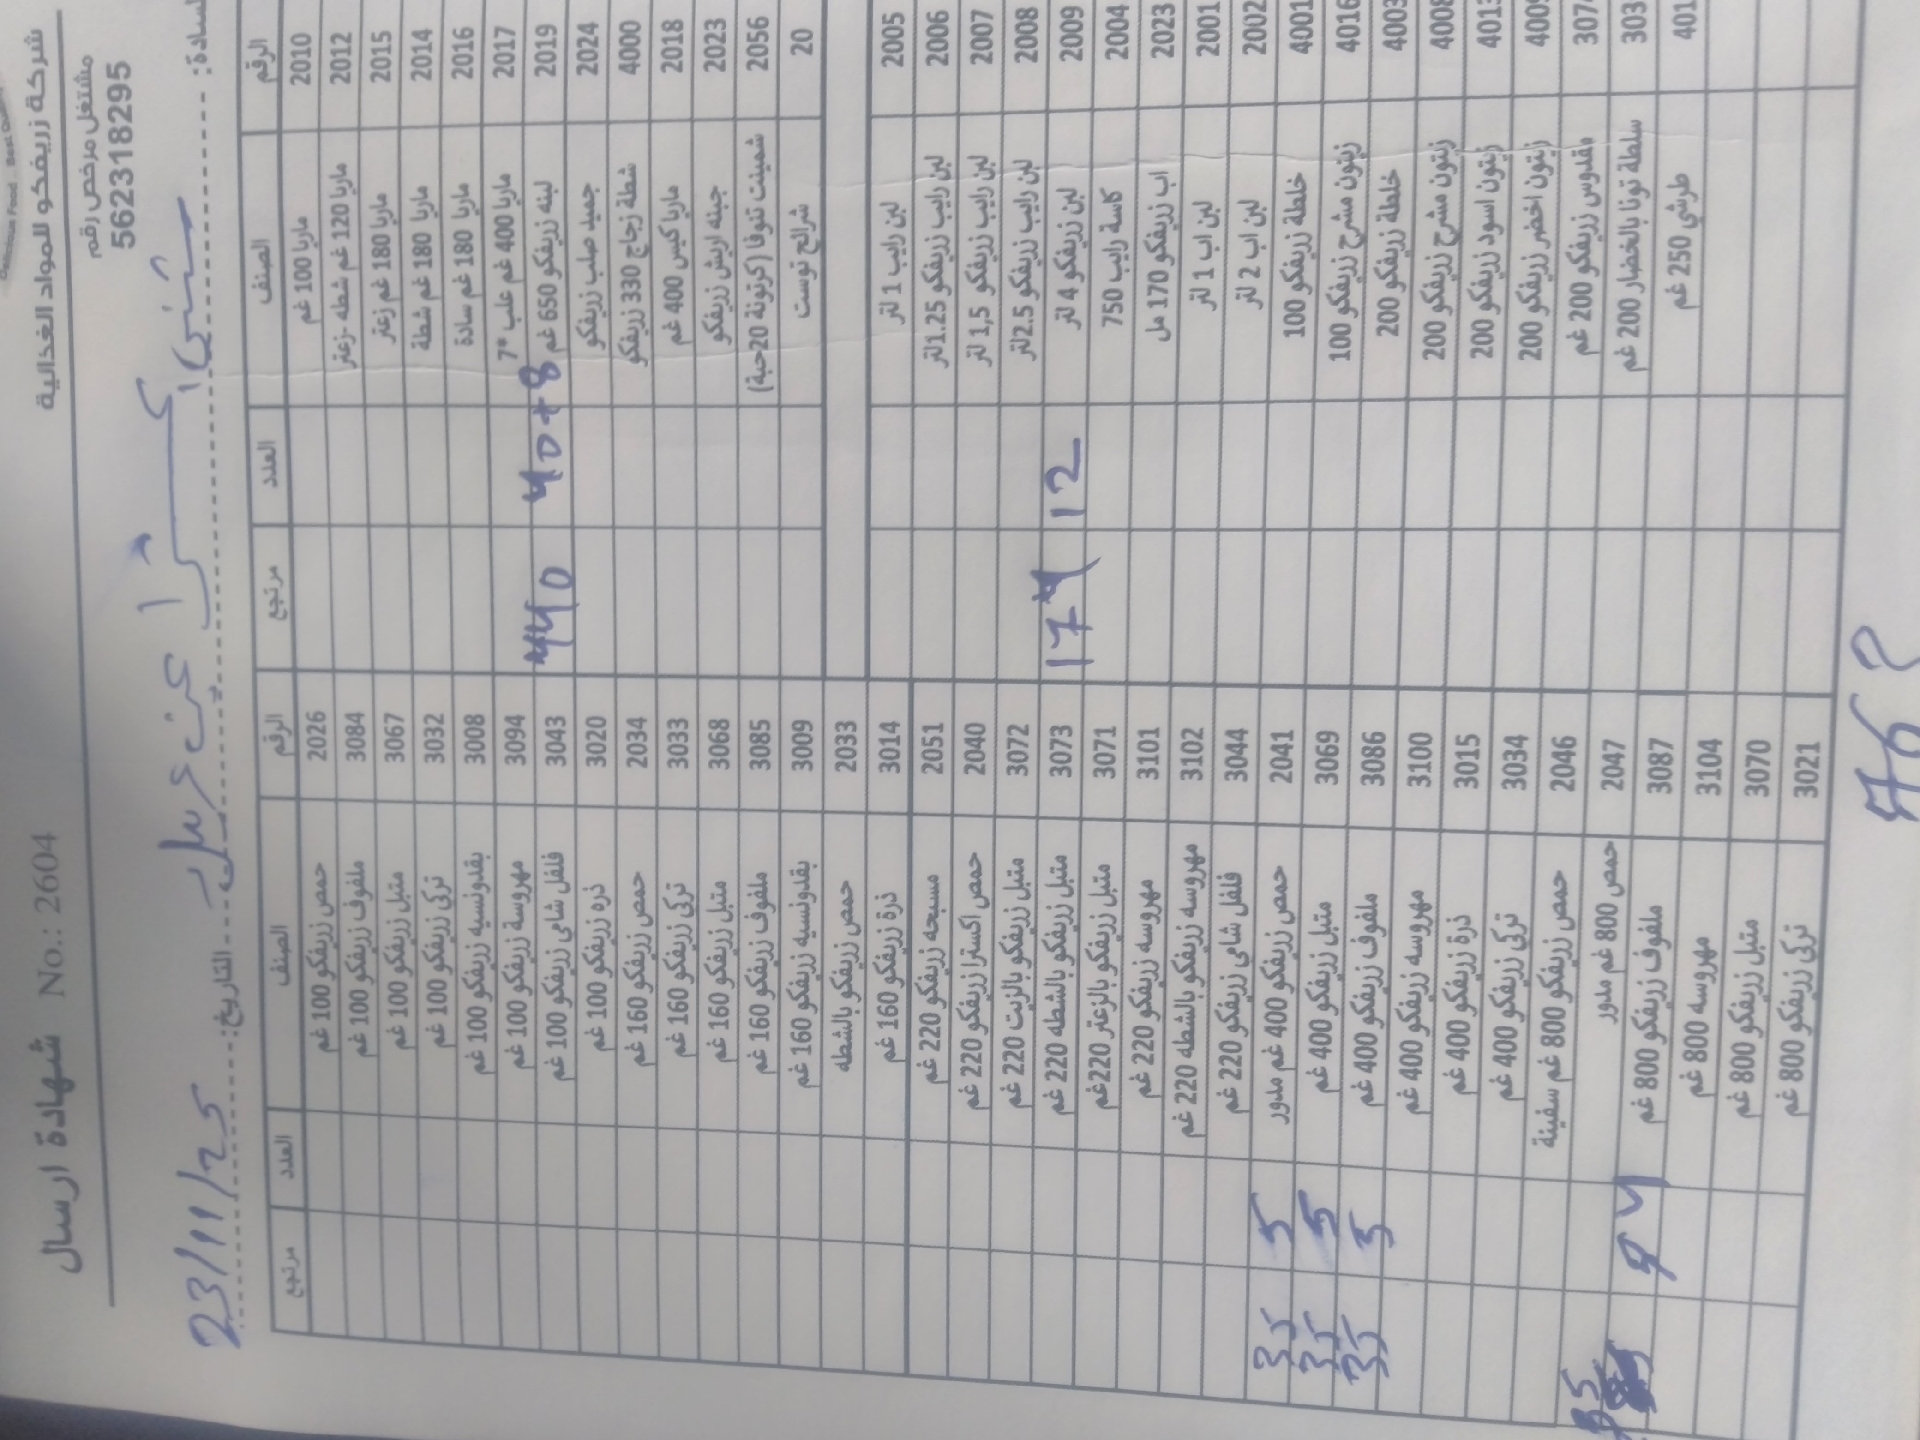 شركة زريفكو للمواد الغذائية
شهادة ارسال No.: 2604
مشتغل مرخص رقم
562318295
السادة:
التاريخ: 23/11/25
الرقم الصنف العدد مرتجع الرقم الصنف العدد مرتجع
2010 ماريا 100 غم 2026 حمص زريفكو 100 غم
2012 ماريا 120 غم شطه -زعتر 3084 ملفوف زريفكو 100 غم
2015 ماريا 180 غم زعتر 3067 متبل زريفكو 100 غم
2014 ماريا 180 غم شطة 3032 تركي زريفكو 100 غم
2016 ماريا 180 غم سادة 3008 بقدونسيه زريفكو 100 غم
2017 ماريا 400 غم علب *7 3094 مهروسة زريفكو 100 غم
2019 لبنه زريفكو 650 غم 40+8 440 3043 فلفل شامي زريفكو 100 غم
2024 جميد صلب زريفكو 3020 ذره زريفكو 100 غم
4000 شطة زجاج 330 زريفكو 2034 حمص زريفكو 160 غم
2018 ماريا كيس 400 غم 3033 تركي زريفكو 160 غم
2023 جبنه اريش زريفكو 3068 متبل زريفكو 160 غم
2056 شمينت تنوفا (كرتونة 20حبة) 3085 ملفوف زريفكو 160 غم
20 شرائح توست 3009 بقدونسيه زريفكو 160 غم
2033 حمص زريفكو بالشطه
2005 لبن رايب 1 لتر 3014 ذرة زريفكو 160 غم
2006 لبن رايب زريفكو 1.25لتر 2051 مسبحه زريفكو 220 غم
2007 لبن رايب زريفكو 1,5 لتر 2040 حمص اكسترا زريفكو 220 غم
2008 لبن رايب زريفكو 2.5لتر 3072 متبل زريفكو بالزيت 220 غم
2009 لبن زريفكو 4 لتر 12 3073 متبل زريفكو بالشطه 220 غم
2004 كاسة رايب 750 3071 متبل زريفكو بالزعتر 220غم
2023 اب زريفكو 170 مل 3101 مهروسه زريفكو 220 غم
2001 لبن اب 1 لتر 3102 مهروسه زريفكو بالشطه 220 غم
2002 لبن اب 2 لتر 3044 فلفل شامي زريفكو 220 غم
4001 خلطة زريفكو 100 2041 حمص زريفكو 400 غم مدور 5 35
4016 زيتون مشرح زريفكو 100 3069 متبل زريفكو 400 غم 5 35
4003 خلطة زريفكو 200 3086 ملفوف زريفكو 400 غم 5 35
4008 زيتون مشرح زريفكو 200 3100 مهروسه زريفكو 400 غم
4013 زيتون اسود زريفكو 200 3015 ذرة زريفكو 400 غم
4009 زيتون اخضر زريفكو 200 3034 تركي زريفكو 400 غم
307 مقدوس زريفكو 200 غم 2046 حمص زريفكو 800 غم سفينة
303 سلطة تونا بالخضار 200 غم 2047 حمص 800 غم مدور
401 طرشي 250 غم 3087 ملفوف زريفكو 800 غم
3104 مهروسه 800 غم
3070 متبل زريفكو 800 غم
3021 تركي زريفكو 800 غم